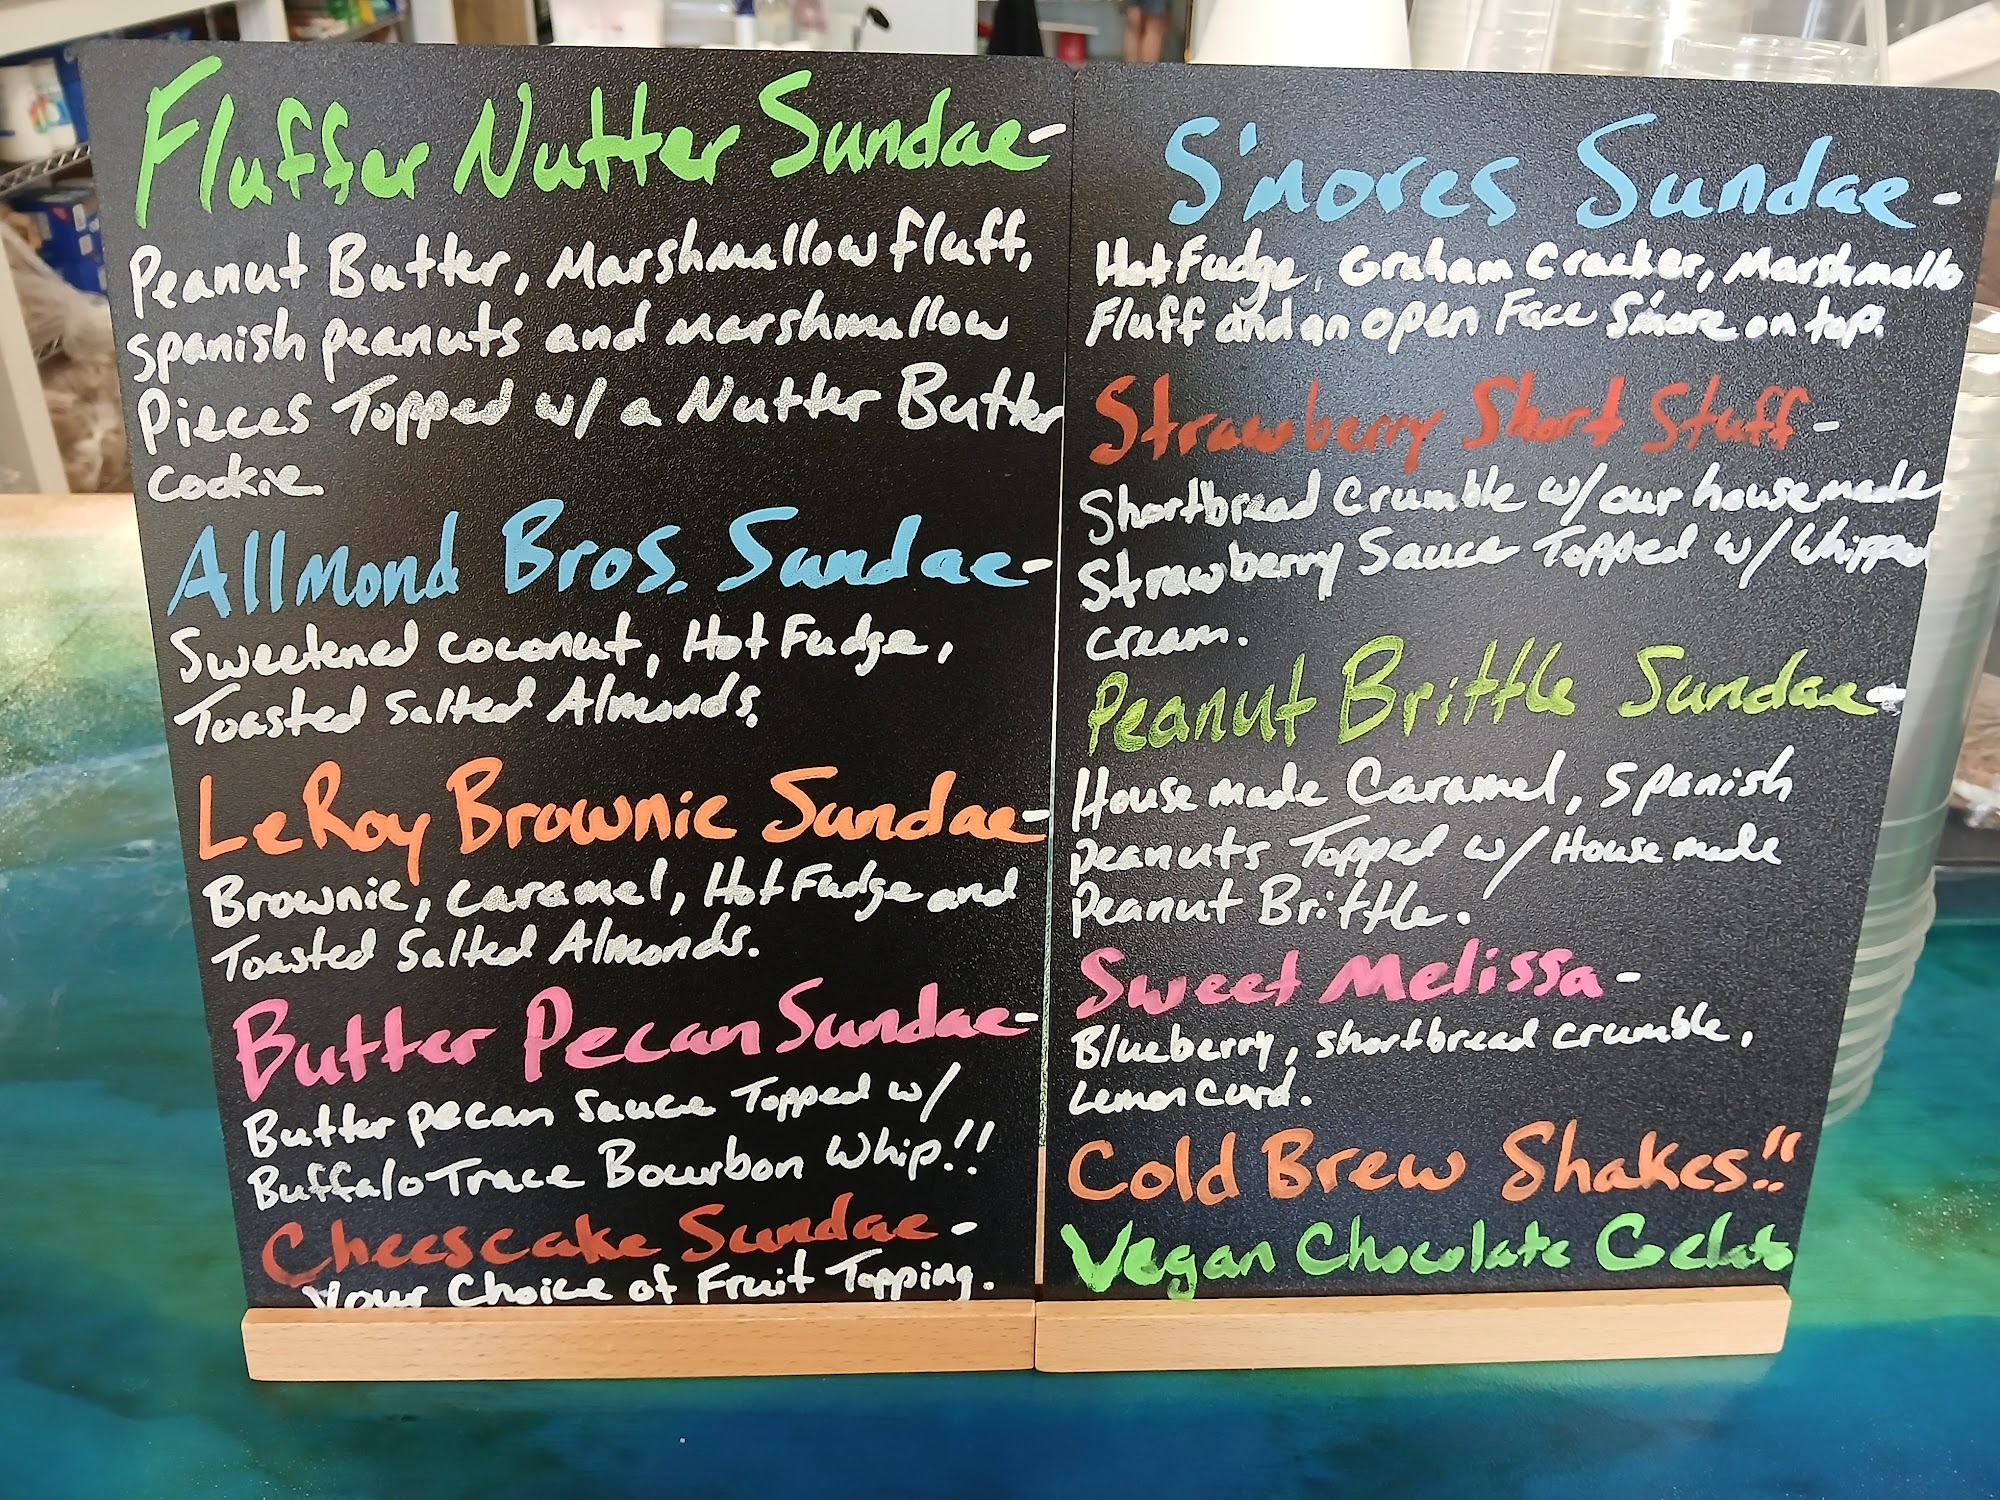 Fluffer Nutter Sundae-
Peanut Butter, Marshmallow fluff,
spanish peanuts and marshmallow
Pieces Topped w/ a Nutter Butter
Cookie.
Allmond Bros. Sundae-
Sweetened coconut, Hot Fudge,
Toasted Salted Almonds.
LeRoy Brownie Sundae-
Brownie, caramel, Hot Fudge and
Toasted Salted Almonds.
Butter Pecan Sundae-
Butter pecan sauce Topped w/
Buffalo Trace Bourbon Whip!!
Cheescake Sundae-
Your Choice of Fruit Topping.
S'mores Sundae-
Hot Fudge, Graham Cracker, Marshmallo
Fluff and an open Face S'more on top.
Strawberry Short Stuff-
Shortbread Crumble w/ our housemade
Strawberry Sauce Topped w/ Whipped
cream.
Peanut Brittle Sundae-
House made Caramel, spanish
peanuts Topped w/ House made
Peanut Brittle.
Sweet Melissa-
Blueberry, shortbread crumble,
Lemon Curd.
Cold Brew Shakes!!
Vegan Chocolate Gelato